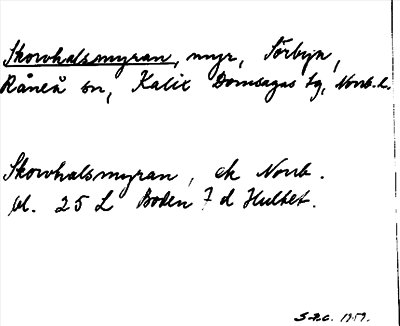 Skorvhalsmyran, myr, Sörbyn,
Råneå sn, Kalix Domsagas tg, Norrb. l.
Skorvhalsmyran, ek Norrb.
bl. 25 L Boden 7 d Hultet.
1959.